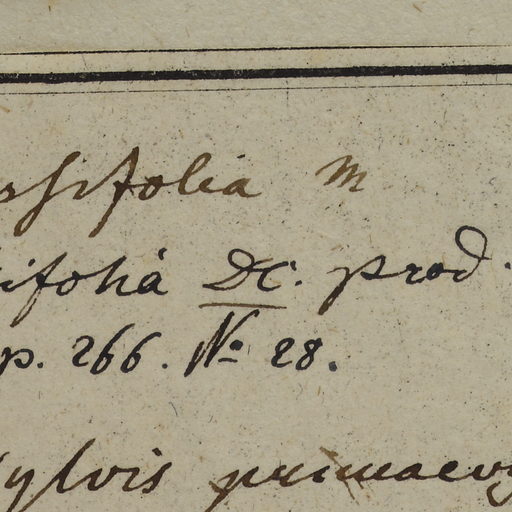 ssifolia m
ifolia DC. prod.
p. 266. No 28.
sylvis primaev